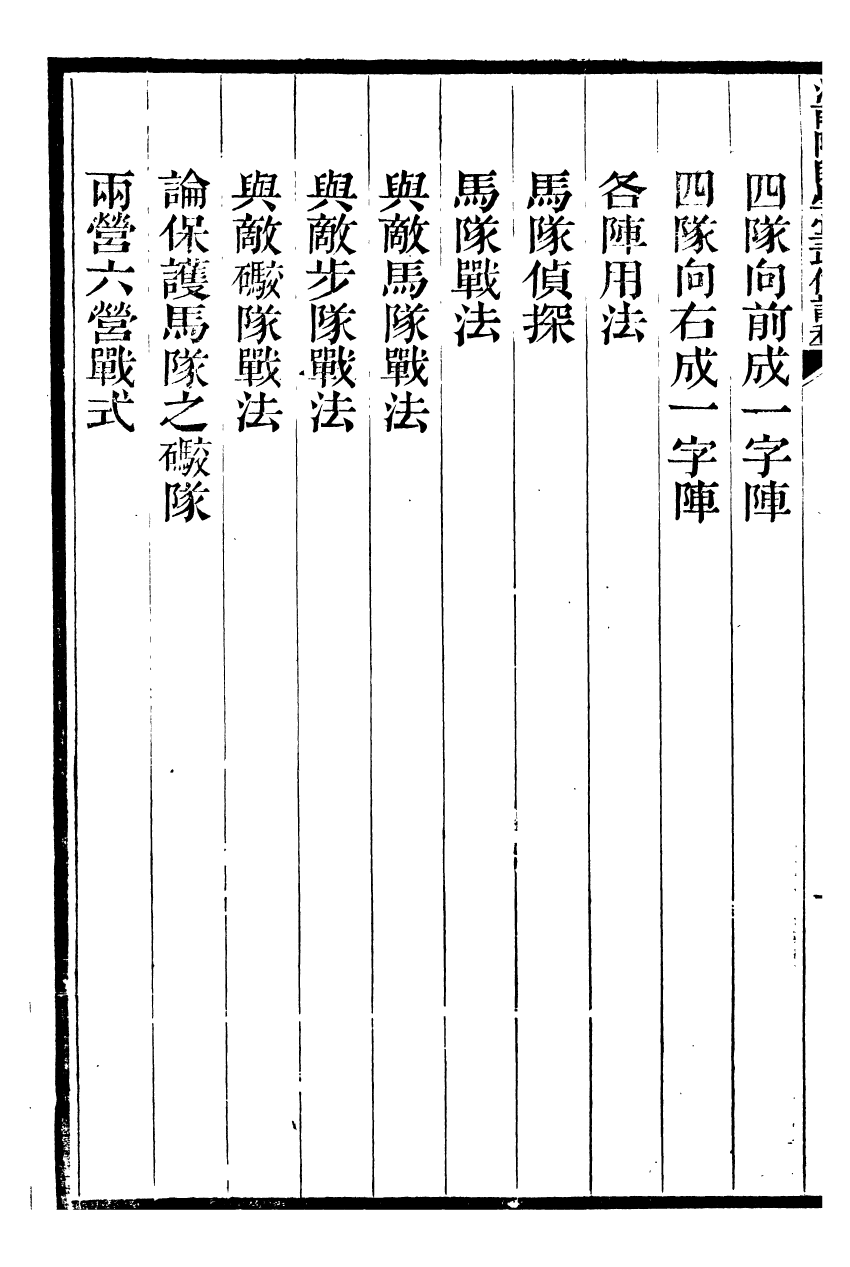 四隊向前成一字陣
四隊向右成一字陣
各陣用法
馬隊偵探
馬隊戰法
與敵馬隊戰法
與敵步隊戰法
與敵礮隊戰法
論保護馬隊之礮隊
兩營六營戰式